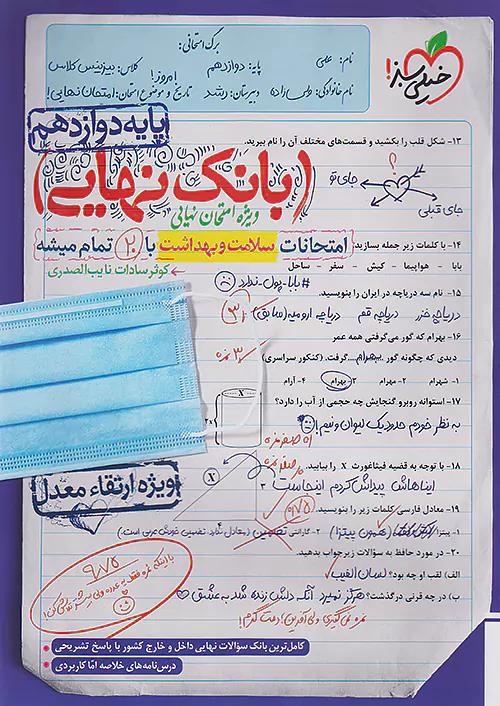 برگ امتحانی:
نام: علی
پایه: دوازدهم
کلاس: بیزینس کلاس
نام خانوادگی: ولی‌زاده
دبیرستان: رشد
امروز!
تاریخ و موضوع امتحان: امتحان نهایی!
خیلی سبز!
پایه دوازدهم
۱۳- شکل قلب را بکشید و قسمت‌های مختلف آن را نام ببرید.
بانک نهایی
ویژه امتحان نهایی
جای تو
؟
جای قبلی
امتحانات سلامت و بهداشت با ۲۰ تمام میشه
کوثر سادات نایب‌الصدری
۱۴- با کلمات زیر جمله بسازید:
بابا - هواپیما - کیش - سفر - ساحل
#بابا-پول-ندارد
۱۵- نام سه دریاچه در ایران را بنویسید.
دریاچه خزر دریاچه قم دریاچه ارومیه (سابق)
۳
۱۶- بهرام که گور می‌گرفتی همه عمر
دیدی که چگونه گور بهرام گرفت. (کنکور سراسری)
۳ نمره
۱- شهرام ۲- مهرام ۳- بهرام ۴- آرام
۱۷- استوانه روبرو گنجایش چه حجمی از آب را دارد؟
به نظر خودم حدود یک لیوان و نیم!
X
۱۸- با توجه به قضیه فیثاغورث X را بیابید.
ایناهاش پیداش کردم اینجاست
X
۳
۴
۰/۷۵
۱۹- معادل فارسی کلمات زیر را بنویسید.
۱- پیتزا (همون پیتزا) ۲- گارانتی
۲۰- در مورد حافظ به سؤالات زیر جواب بدهید.
الف) لقب او چه بود؟ لسان الغیب
ب) در چه قرنی درگذشت؟ هرگز نمیرد آنکه دلش زنده شد به عشق
۹/۷۵
ویژه ارتقاء معدل
کامل‌ترین بانک سؤالات نهایی داخل و خارج کشور با پاسخ تشریحی
درس‌نامه‌های خلاصه امّا کاربردی